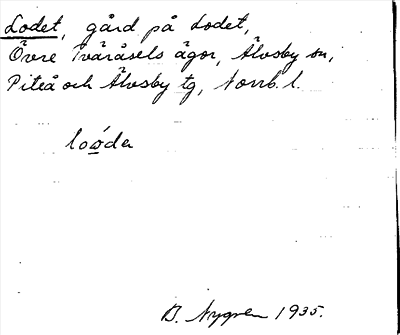 Lodet, gård på Lodet,
Övre Tvåråsels ägor, Älvsby sn,
Piteå och Älvsby tg, Norrb. l.
B. Nygren 1935.